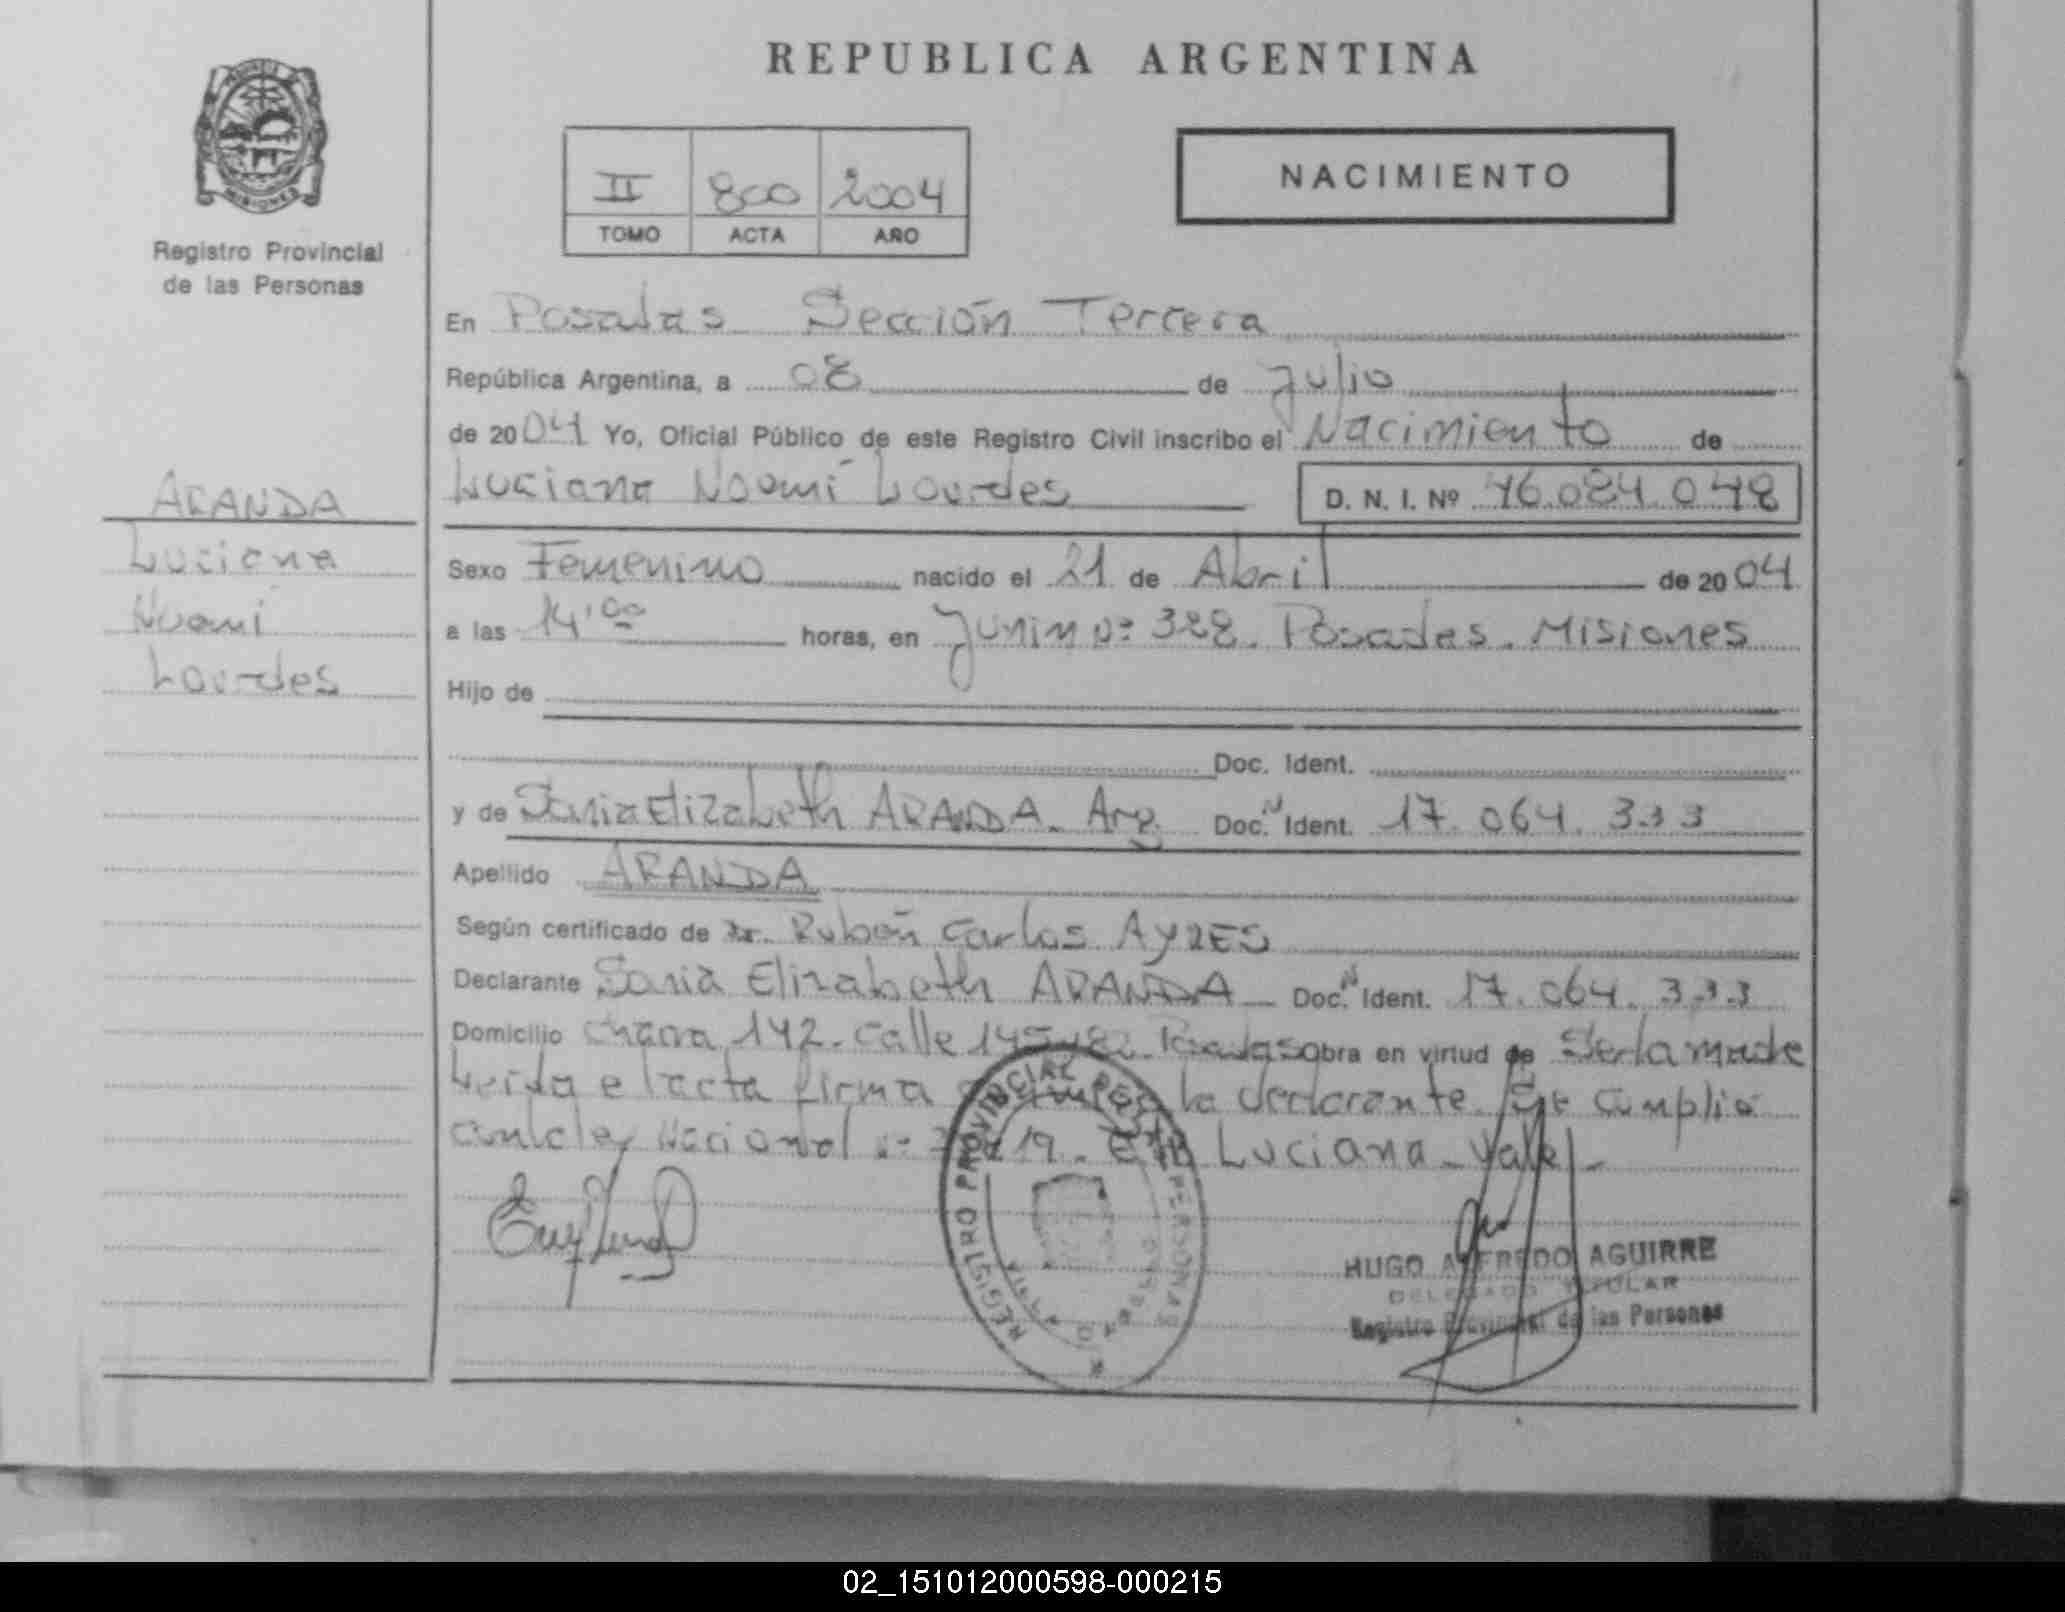 REPUBLICA ARGENTINA
II 800 2004
TOMO ACTA AÑO
NACIMIENTO
MISIONES
Registro Provincial
de las Personas
ARANDA
Luciana
Noemí
Lourdes
En Posadas Sección Tercera
República Argentina, a 08 de Julio
de 2004 Yo, Oficial Público de este Registro Civil inscribo el Nacimiento de
Luciana Noemí Lourdes D. N. I. Nº 46.084.048
Sexo Femenino nacido el 21 de Abril de 2004
a las 14'00 horas, en Junin Nº 328. Posadas. Misiones
Hijo de
Doc. Ident.
y de Sonia Elizabeth ARANDA. Arg. Doc. N Ident. 17.064.333
Apellido ARANDA
Según certificado de Dr. Rubén Carlos AYRES
Declarante Sonia Elizabeth ARANDA Doc. N Ident. 17.064.333
Domicilio Chacra 142. Calle 145 Posadas obra en virtud de Ser la madre
Leída el acta firma la declarante. Se cumplió
con la ley Nacional Luciana Vale
REGISTRO PROVINCIAL PERSONAS
HUGO ALFREDO AGUIRRE
DELEGADO TITULAR
Registro Provincial de las Personas
02_151012000598-000215